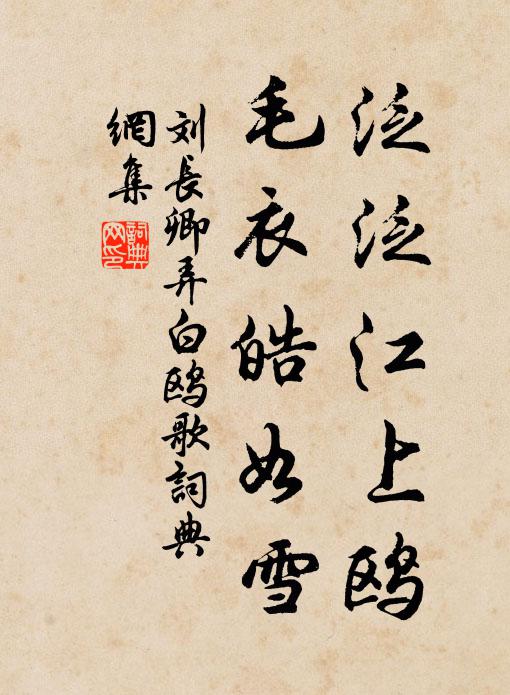 泛泛江上鸥
毛衣皓如雪
刘長卿弄白鸥歌詞典
網集
詞典
网印